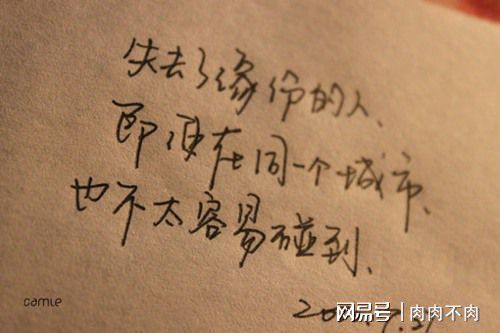 失去了缘份的人、
即便在同一个城市、
也不太容易碰到、
camie
网易号 | 肉肉不肉